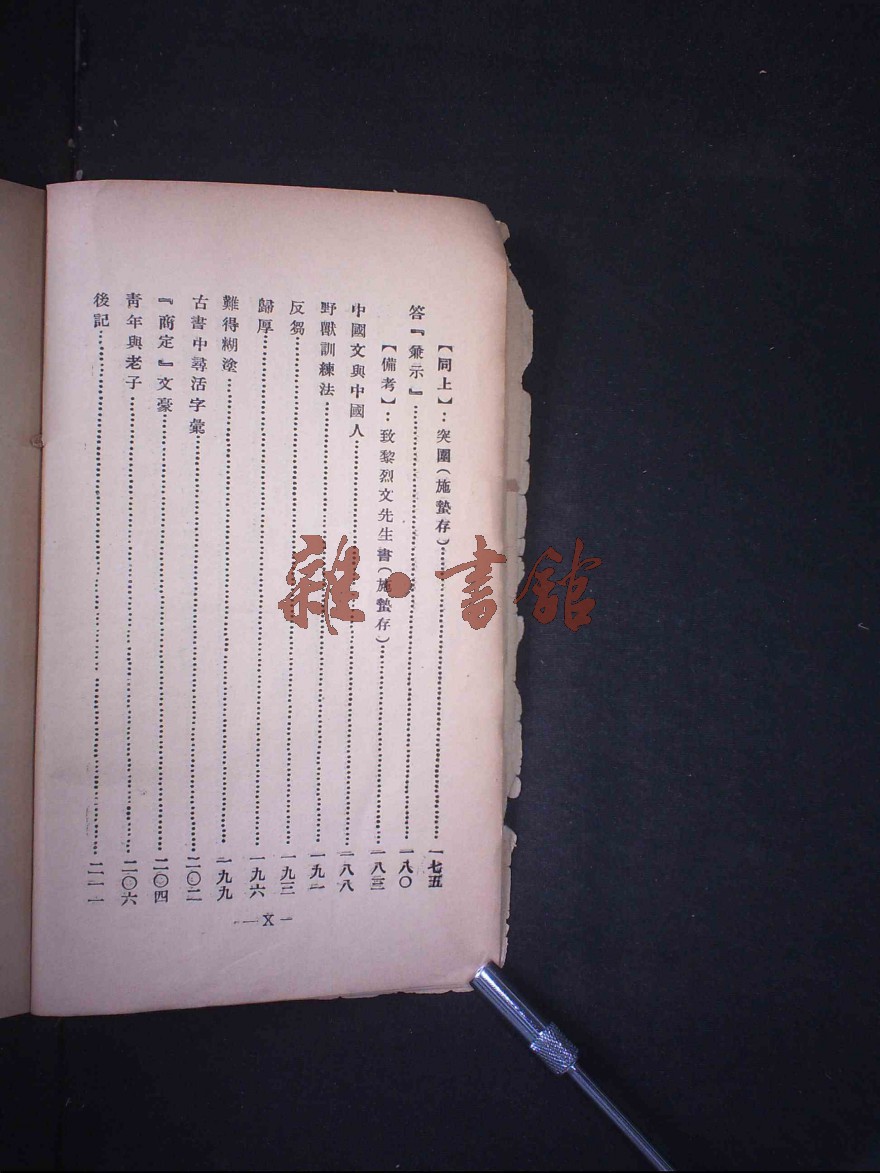 【同上】：突圍（施蟄存）……一七五
答『兼示』……一八〇
【備考】：致黎烈文先生書（施蟄存）……一八三
中國文與中國人……一八八
野獸訓練法……一九一
反芻……一九三
歸厚……一九六
難得糊塗……一九九
古書中尋活字彙……二〇二
『商定』文豪……二〇四
青年與老子……二〇六
後記……二一一
—X—
雜·書館